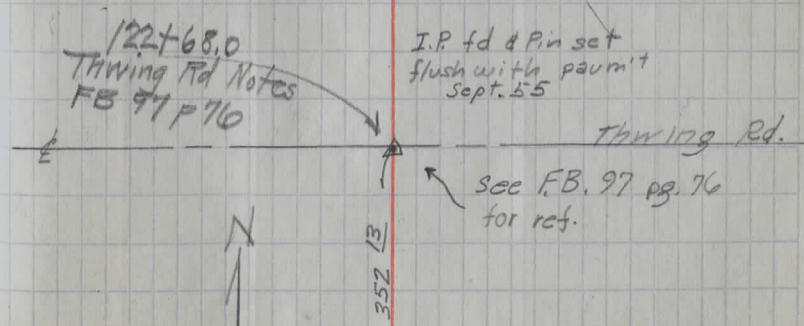 122+68.0
Thwing Rd Notes
FB 97 p 76
I.P. fd & Pin set
flush with pavm't
Sept. 55
℄
Thwing Rd.
See F.B. 97 pg. 76
for ref.
N
352 13